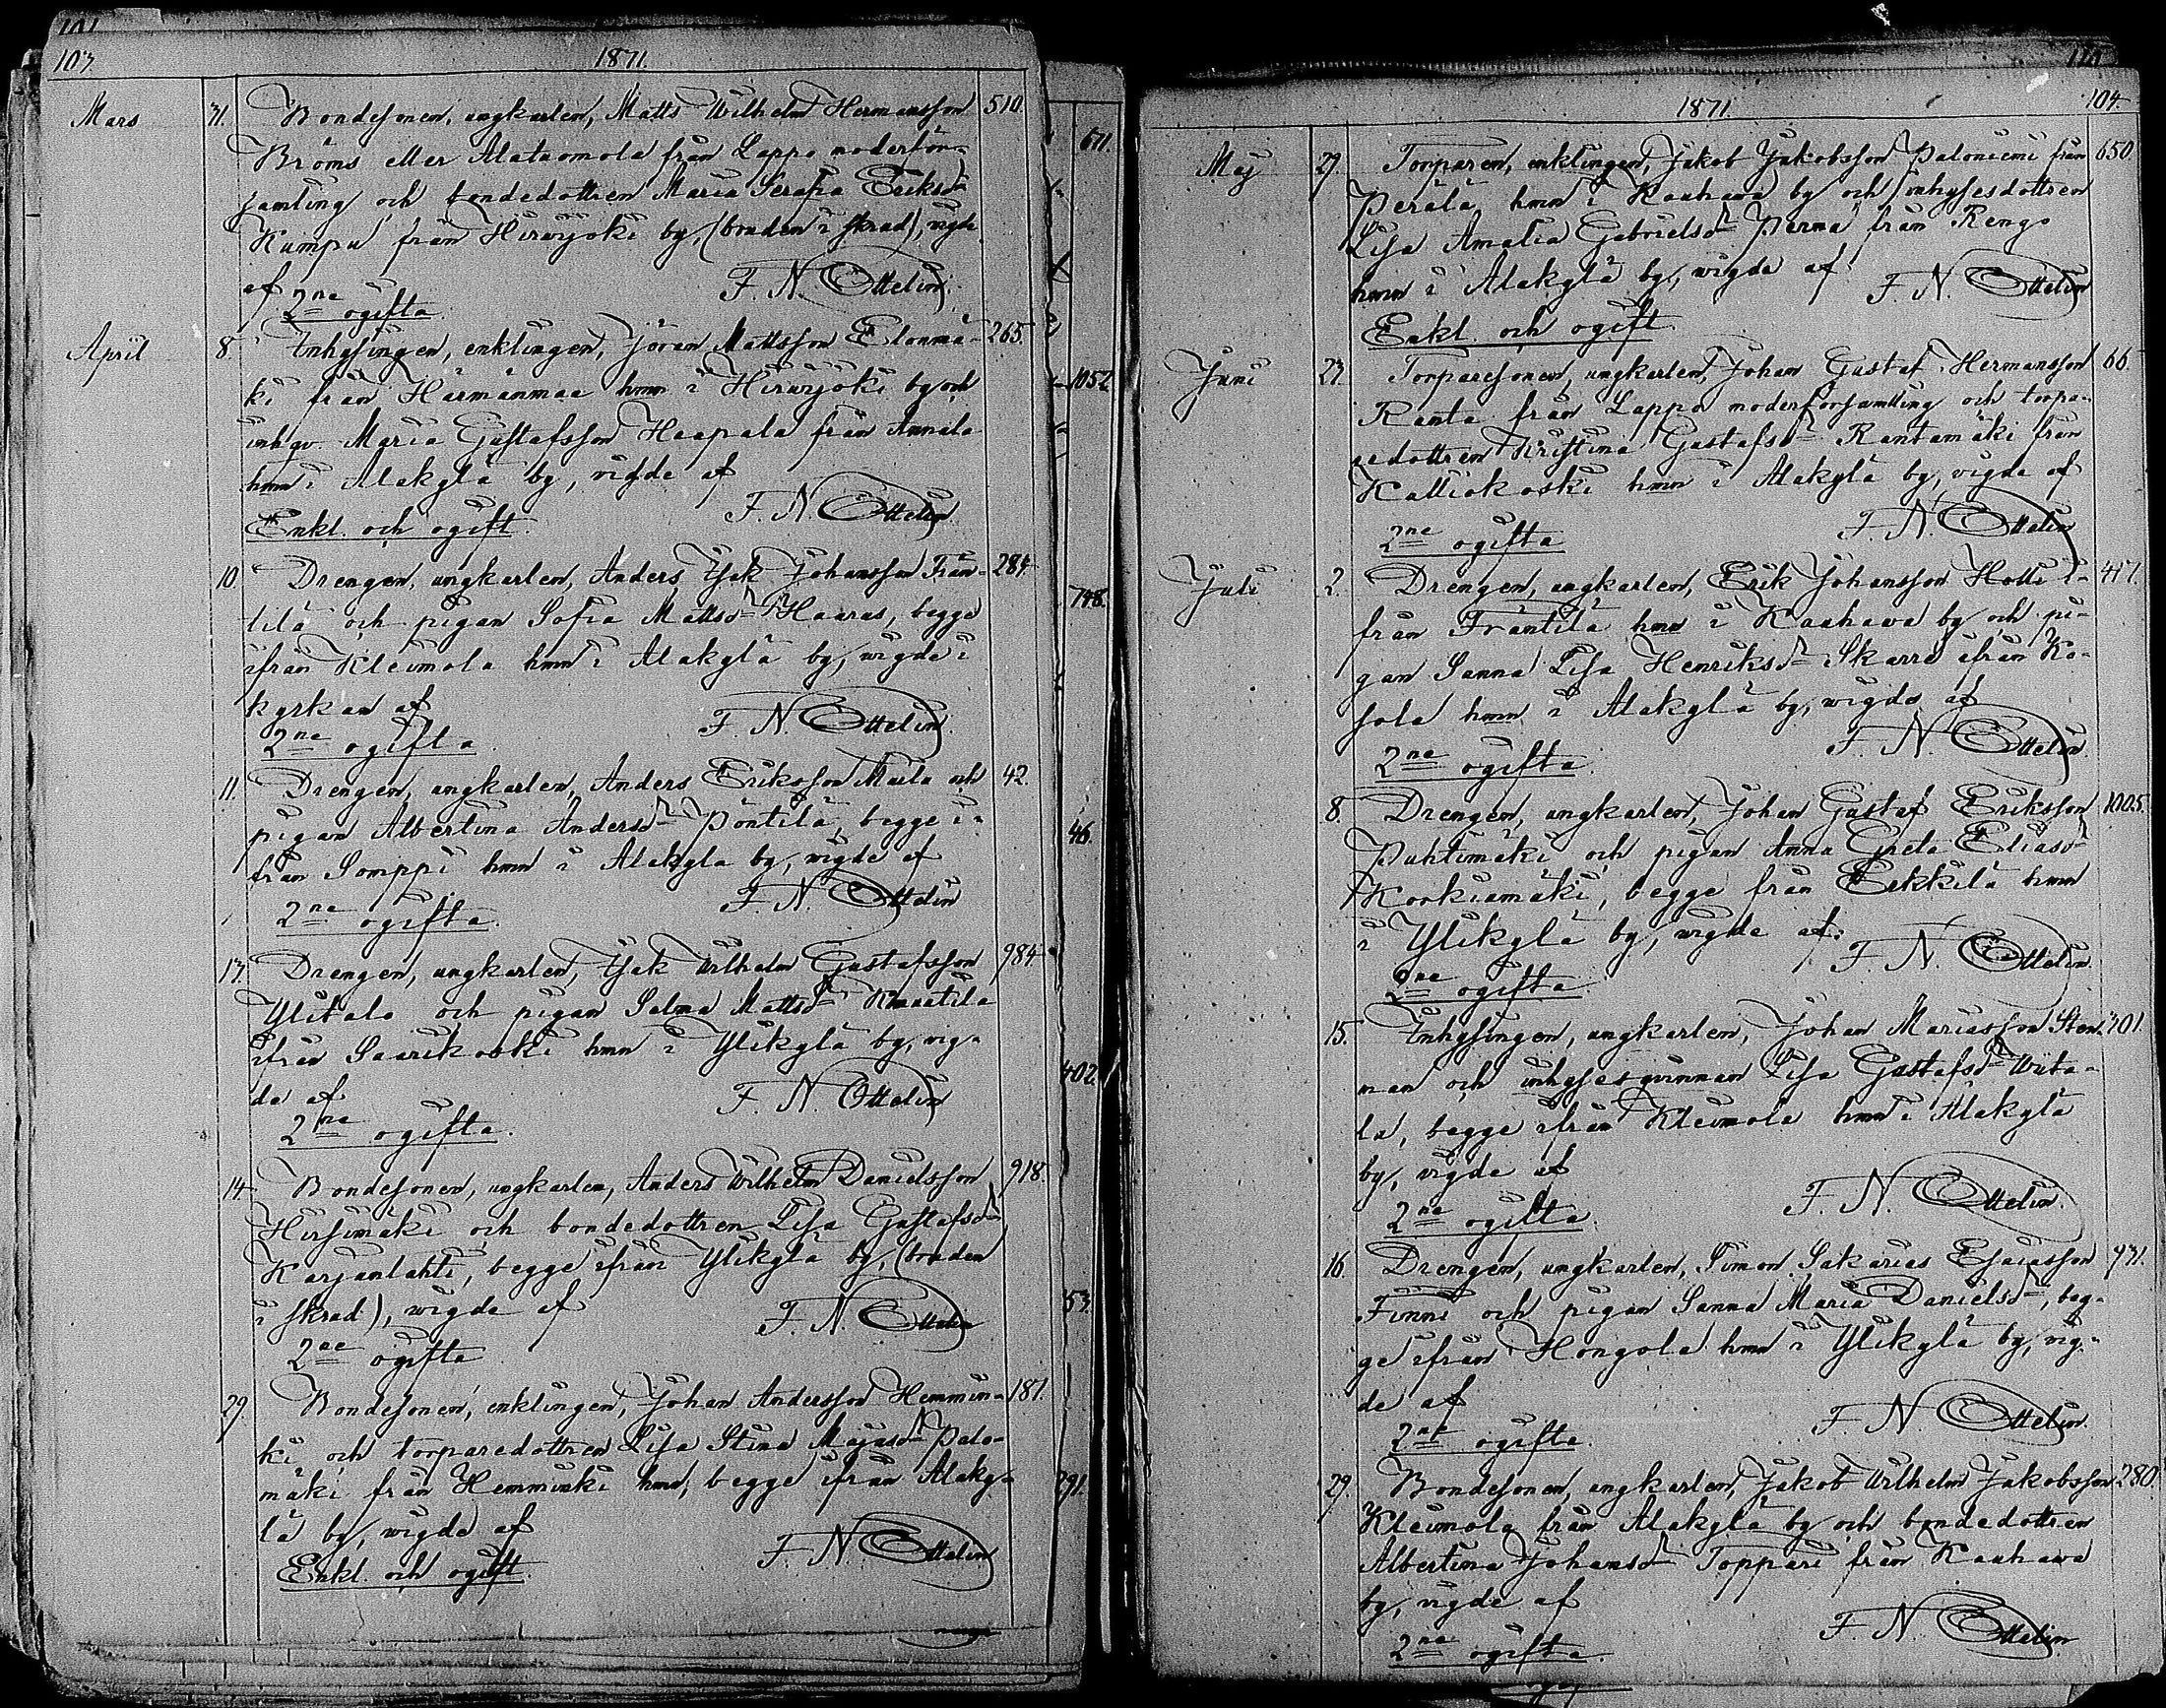 101
103.
1871.
Mars 31. Bondesonen, ungkarlen, Matts Wilhelm Hermansson 510.
Bröms eller Alataomola från Lappo moderför-
samling och bondedottren Maria Serafia Eriksdr
Kumpu från Hirvijoki by, (bonden i skrad), vigde
af F. N. Ottelin.
2ne ogifta.
April 8. Inhysingen, enklingen, Jöran Mattsson Elonmä- 265.
ki från Härmänmaa hmn i Hirvijoki by och
inhqv. Maria Gustafsson Haapala från Annala
hmn i Alakylä by, vigde af
F. N. Ottelin.
Enkl. och ogift.
10. Drengen, ungkarlen, Anders Isak Johansson Frän- 284.
tilä och pigan Sofia Mattsdr Haaras, begge
ifrån Kleimola hmn i Alakylä by, wigde i
kyrkan af
F. N. Ottelin.
2ne ogifta.
11. Drengen, ungkarlen, Anders Eriksson Maila och 42.
pigan Albertina Andersdr Pöntilä, begge i-
från Somppi hmn i Alakyla by, wigde af
F. N. Ottelin
2ne ogifta.
13. Drengen, ungkarlen, Isak Wilhelm Gustafsson 984.
Ylitalo och pigan Salma Mattsdr Knuutila
ifrån Saarikoski hmn i Ylikylä by, vig-
de af F. N. Ottelin
2ne ogifta.
14. Bondesonen, ungkarlen, Anders Wilhelm Danielsson 918.
Hirsimäki och bondedottren Lisa Gustafsdr
Karjanlahti, begge ifrån Ylikylä by, (bonden
i skrad), wigde af F. N. Ottelin
2ne ogifta
29. Bondesonen, enklingen, Johan Andersson Hemmin- 187.
ki och torparedottren Lisa Stina Majasdr Palo-
mäki från Hemminki hmn, begge ifrån Alaky-
lä by, wigde af
F. N. Ottelin
Enkl. och ogift.
671.
1052
748.
46.
402.
53.
291.
1871.
104.
Maj 29. Torparen, enklingen, Jakob Jakobsson Paloniemi från 650.
Perälä hmn i Kauhawa by och inhysesdottren
Lisa Amalia Gabrielsdr Permä från Rengo
hmn i Alakylä by, wigde af
F. N. Ottelin
Enkl. och ogift.
Juni 23. Torparesonen, ungkarlen, Johan Gustaf Hermansson 66.
Ranta från Lappo moderförsamling och torpa-
redottren Kristina Gustafsdr Rantamäki från
Kalliokoski hmn i Alakylä by, vigde af
F. N. Ottelin
2ne ogifta
Juli 2. Drengen, ungkarlen, Erik Johansson Holli i- 417.
från Fräntilä hmn i Kauhawa by och pi-
gan Sanna Lisa Henriksdr Skarre ifrån Ko-
sola hmn i Alakylä by, wigde af
F. N. Ottelin.
2ne ogifta.
8. Drengen, ungkarlen, Johan Gustaf Eriksson 1005.
Puhtimäki och pigan Anna Greta Eliasdr
Kookiamäki, begge från Eekkilä hmn
i Ylikylä by, wigde af:
F. N. Ottelin.
2ne ogifta.
15. Inhysingen, ungkarlen, Johan Mariasson Sten- 201.
man och inhysesqvinnan Lisa Gustafsdr Wiita-
la, begge ifrån Kleimola hmn i Alakylä
by, vigde af
F. N. Ottelin.
2ne ogifta.
16. Drengen, ungkarlen, Simon Sakarias Esaiasson 931.
Finni och pigan Sanna Maria Danielsdr, beg-
ge ifrån Hongola hmn i Ylikylä by, vig-
de af
F. N. Ottelin.
2ne ogifta.
29. Bondesonen, ungkarlen, Jakob Wilhelm Jakobsson 280.
Kleimola från Alakylä by och bondedottren
Albertina Johansdr Toppari från Kauhawa
by, vigde af
F. N. Ottelin
2ne ogifta.